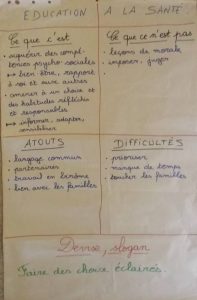 EDUCATION A LA SANTÉ
Ce que c'est
• acquérir des compé-
tences psycho-sociales
↳ bien être, rapport
à soi et aux autres
• amener à un choix et
des habitudes réfléchis
et responsables
↳ informer, adapter,
sensibiliser
Ce que ce n'est pas
• leçons de morale
• imposer, juger
ATOUTS
• langage commun
• partenaires
• travail en binôme
• lien avec les familles
DIFFICULTÉS
• prioriser
• manque de temps
• toucher les familles
Devise, slogan
Faire des choix éclairés.